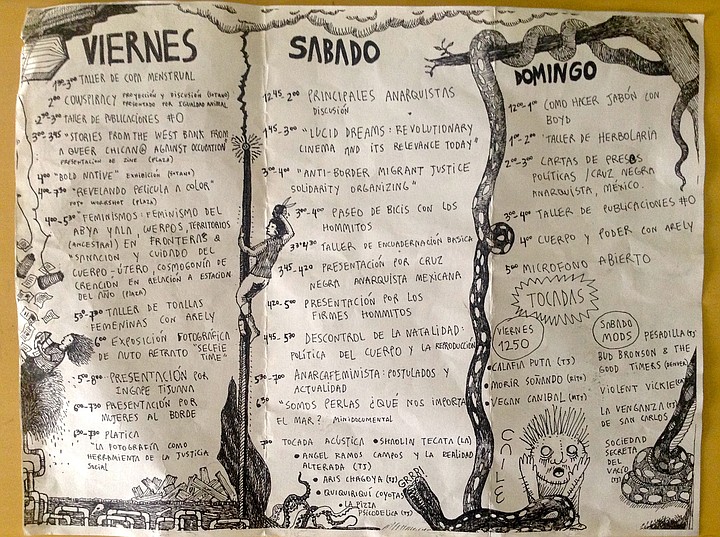 VIERNES
1:00-3:00 TALLER DE COPA MENSTRUAL
2:00 CONSPIRACY PROYECCIÓN Y DISCUSIÓN (SOTANO)
PRESENTADO POR IGUALDAD ANIMAL
TALLER DE PUBLICACIONES #0
3:00-3:45 "STORIES FROM THE WEST BANK FROM
A QUEER CHICAN@ AGAINST OCCUPATION
PRESENTACION DE ZINE (PLAZA)
4:00 "BOLD NATIVE" EXHIBICIÓN (SOTANO)
4:00-7:30 "REVELANDO PELICULA A COLOR"
FOTO WORKSHOP (PLAZA)
4:00-5:30 "FEMINISMOS: FEMINISMO DEL
ABYA YALA, CUERPOS, TERRITORIOS
(ANCESTRAL) EN FRONTERAS &
"SANACION Y CUIDADO DEL
CUERPO-ÚTERO, COSMOGONÍA DE
CREACIÓN EN RELACIÓN A ESTACIÓN
DEL AÑO (PLAZA)
5:00-7:00 TALLER DE TOALLAS
FEMENINAS CON ARELY
6:00 EXPOSICIÓN FOTOGRÁFICA
DE AUTO RETRATO "SELFIE
TIME"
5:00-8:00 PRESENTACIÓN POR
INGOPE TIJUANA
6:00-7:30 PRESENTACIÓN POR
MUJERES AL BORDE
6:30-7:30 PLATICA
"LA FOTOGRAFÍA COMO
HERRAMIENTA DE LA JUSTICIA
SOCIAL
SABADO
12:45-2:00 PRINCIPALES ANARQUISTAS
DISCUSIÓN
1:45-3:00 "LUCID DREAMS: REVOLUTIONARY
CINEMA AND ITS RELEVANCE TODAY"
3:00-4:00 "ANTI-BORDER MIGRANT JUSTICE
SOLIDARITY ORGANIZING"
3:00-4:00 PASEO DE BICIS CON LOS
HOMMITOS
3:30-4:30 TALLER DE ENCUADERNACIÓN BASICA
3:45-4:20 PRESENTACIÓN POR CRUZ
NEGRA ANARQUISTA MEXICANA
4:20-5:00 PRESENTACIÓN POR LOS
FIRMES HOMMITOS
4:45-5:30 DESCONTROL DE LA NATALIDAD:
POLÍTICA DEL CUERPO Y LA REPRODUCCIÓN
5:30-7:00 ANARCAFEMINISTA: POSTULADOS Y
ACTUALIDAD
6:30 "SOMOS PERLAS ¿QUÉ NOS IMPORTA
EL MAR? MINIDOCUMENTAL
7:00 TOCADA ACÚSTICA • SHAOLIN TECATA (LA)
• ANGEL RAMOS CAMPOS Y LA REALIDAD
ALTERADA (TJ)
• ARIS CHAGOYA (TJ)
• QUIQUIRIQUÍ COYOTAS
• LA PIZZA
PSICODELICA (TJ)
GRRR
DOMINGO
12:00-1:00 COMO HACER JABÓN CON
BOYD
1:00-2:00 TALLER DE HERBOLARÍA
2:00-3:00 CARTAS DE PRESOS
POLÍTICAS/CRUZ NEGRA
ANARQUISTA, MEXICO.
3:00-4:00 TALLER DE PUBLICACIONES #0
4:00 CUERPO Y PODER CON ARELY
5:00 MICROFONO ABIERTO
TOCADAS
VIERNES
1250
• CALAFIA PUTA (TJ)
• MORIR SOÑANDO (RITO)
• VEGAN CANIBAL (MTY)
CAILE
SABADO
MODS
PESADILLA (TJ)
BUD BRONSON & THE
GOOD TIMERS (DENVER)
VIOLENT VICKIE (LA)
LA VENGANZA (TJ)
DE SAN CARLOS
SOCIEDAD
SECRETA
DEL
VACÍO (TJ)